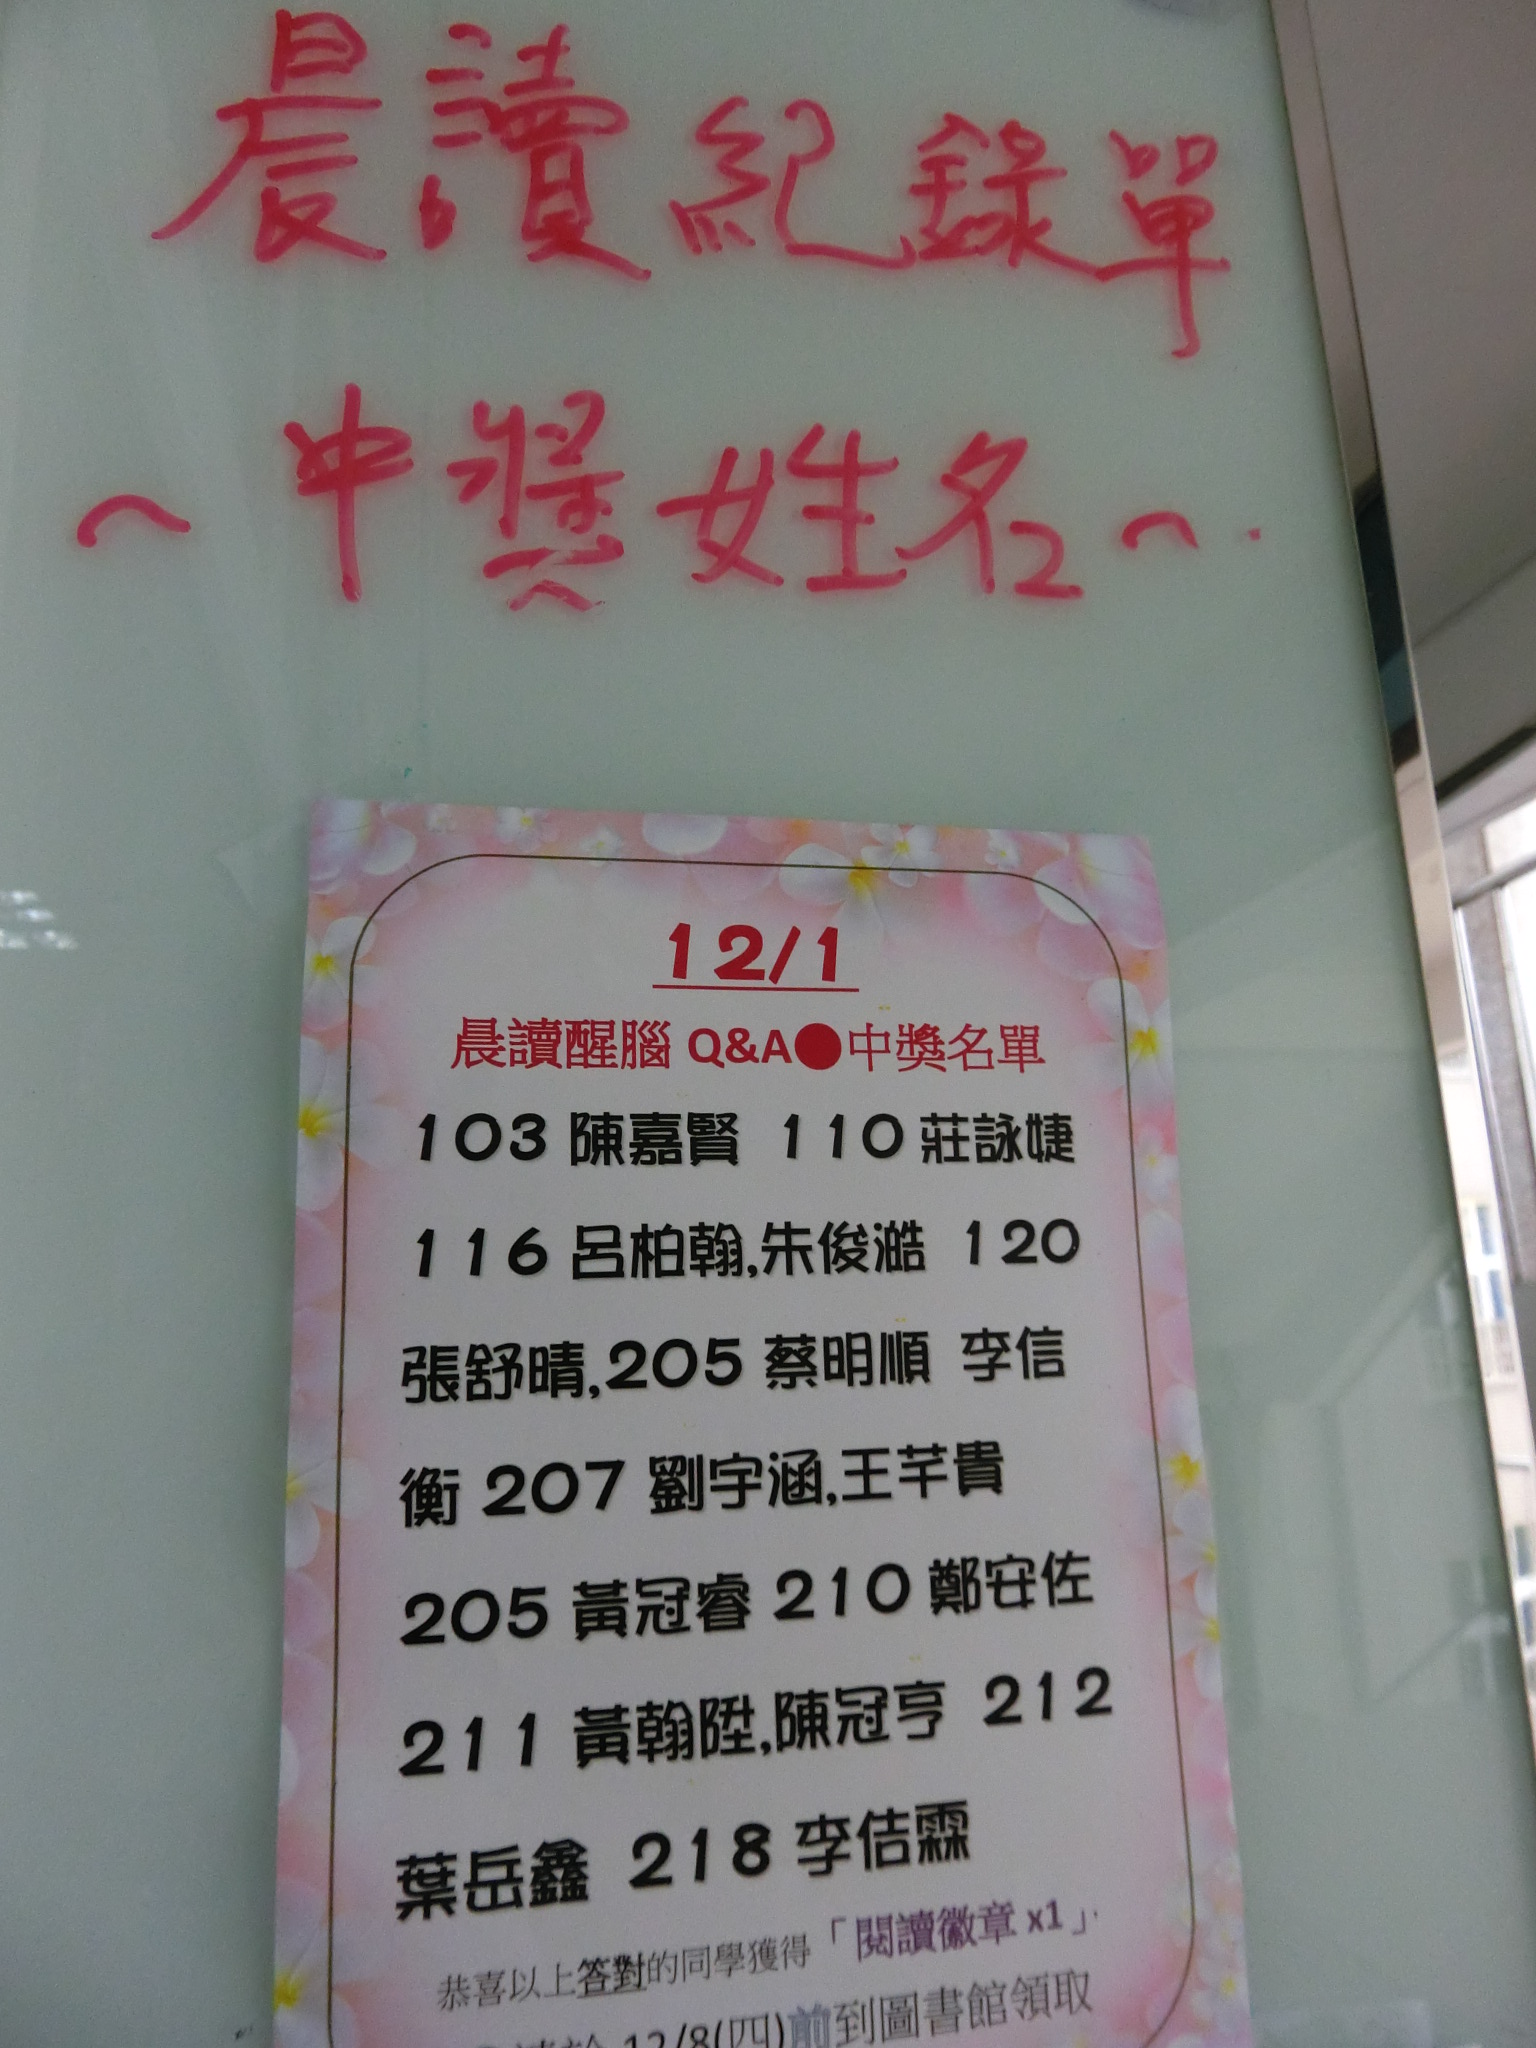 晨讀紀錄單
~中獎姓名~.
12/1
晨讀醒腦 Q&A●中獎名單
103 陳嘉賢 110 莊詠婕
116 呂柏翰,朱俊澔 120
張舒晴,205 蔡明順 李信
衡 207 劉宇涵,王芊貴
205 黃冠睿 210 鄭安佐
211 黃翰陞,陳冠亨 212
葉岳鑫 218 李佶霖
恭喜以上答對的同學獲得「閱讀徽章 x1」.
請於 12/8(四)前到圖書館領取